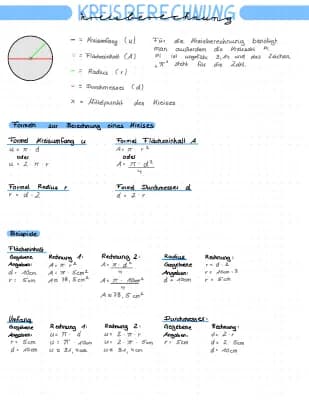 KREISBERECHNUNG
Kreisberechnung
- = Kreisumfang (u)
- = Flächeninhalt (A)
- = Radius (r)
- = Durchmesser (d)
x = Mittelpunkt des Kreises
Für die Kreisberechnung benötigt
man außerdem die Kreiszahl π.
Pi ist ungefähr 3,14 und das Zeichen
"π" steht für die Zahl.
Formeln zur Berechnung eines Kreises
Formel Kreisumfang u
u = π · d
oder
u = 2 · π · r
Formel Flächeninhalt A
A = π · r²
oder
A = π · d²
4
Formel Radius r
r = d : 2
Formel Durchmesser d
d = 2 · r
Beispiele
Flächeninhalt
Gegebene
Angaben:
r = 5cm
d = 10cm
Rechnung 1:
A = π · r²
A = π · 5cm²
A ≈ 78,5cm²
Rechnung 2:
A = π · d²
4
A = π · 10cm²
4
A ≈ 78,5cm²
Radius
Gegebene
Angaben:
d = 10cm
Rechnung:
r = d : 2
r = 10cm : 2
r = 5cm
Umfang
Gegebene
Angaben:
r = 5cm
d = 10cm
Rechnung 1:
u = π · d
u = π · 10cm
u ≈ 31,4cm
Rechnung 2:
u = 2 · π · r
u = 2 · π · 5cm
u ≈ 31,4cm
Durchmesser:
Gegebene
Angaben:
r = 5cm
Rechnung:
d = 2 · r
d = 2 · 5cm
d = 10cm